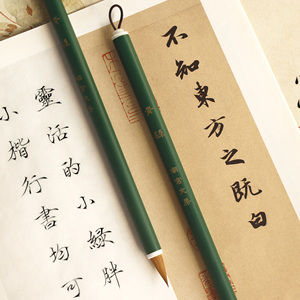 不知東方之既白
靈活的小緑胖
小楷行書均可